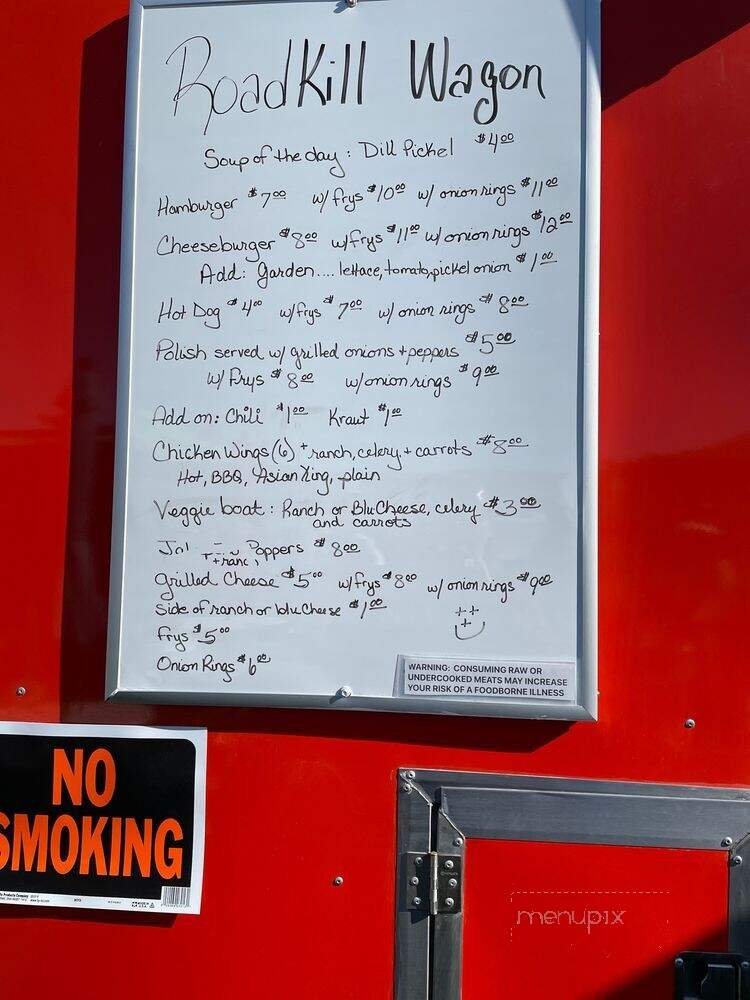 RoadKill Wagon
Soup of the day: Dill Pickel $4.00
Hamburger $7.00 w/ frys $10.00 w/ onion rings $11.00
Cheeseburger $8.00 w/ frys $11.00 w/ onion rings $12.00
Add: Garden.... lettace, tomato, pickel onion $1.00
Hot Dog $4.00 w/ frys $7.00 w/ onion rings $8.00
Polish served w/ grilled onions + peppers $5.00
w/ Frys $8.00 w/ onion rings $9.00
Add on: Chili $1.00 Kraut $1.00
Chicken Wings (6) + ranch, celery, + carrots $8.00
Hot, BBQ, Asian Zing, plain
Veggie boat: Ranch or Blu Cheese, celery $3.00
and carrots
Poppers $8.00
Grilled Cheese $5.00 w/ frys $8.00 w/ onion rings $9.00
side of ranch or blu Cheese $1.00
Frys $5.00
Onion Rings $6.00
WARNING: CONSUMING RAW OR
UNDERCOOKED MEATS MAY INCREASE
YOUR RISK OF A FOODBORNE ILLNESS
NO
SMOKING
menupix